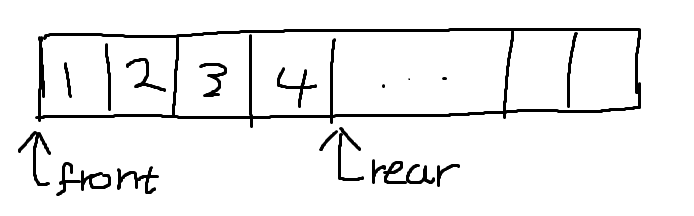 1 2 3 4 ...
front rear